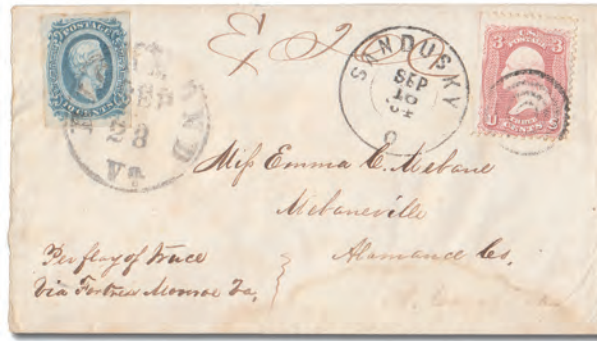 POSTAGE
10 CENTS
SEP
28
Va.
SANDUSKY
SEP
16
O
3 U.S. POSTAGE 3
U THREE CENTS S
Miss Emma C. Mebane
Mebaneville
Alamance Co,
Per flag of truce
Via Fortress Monroe Va,